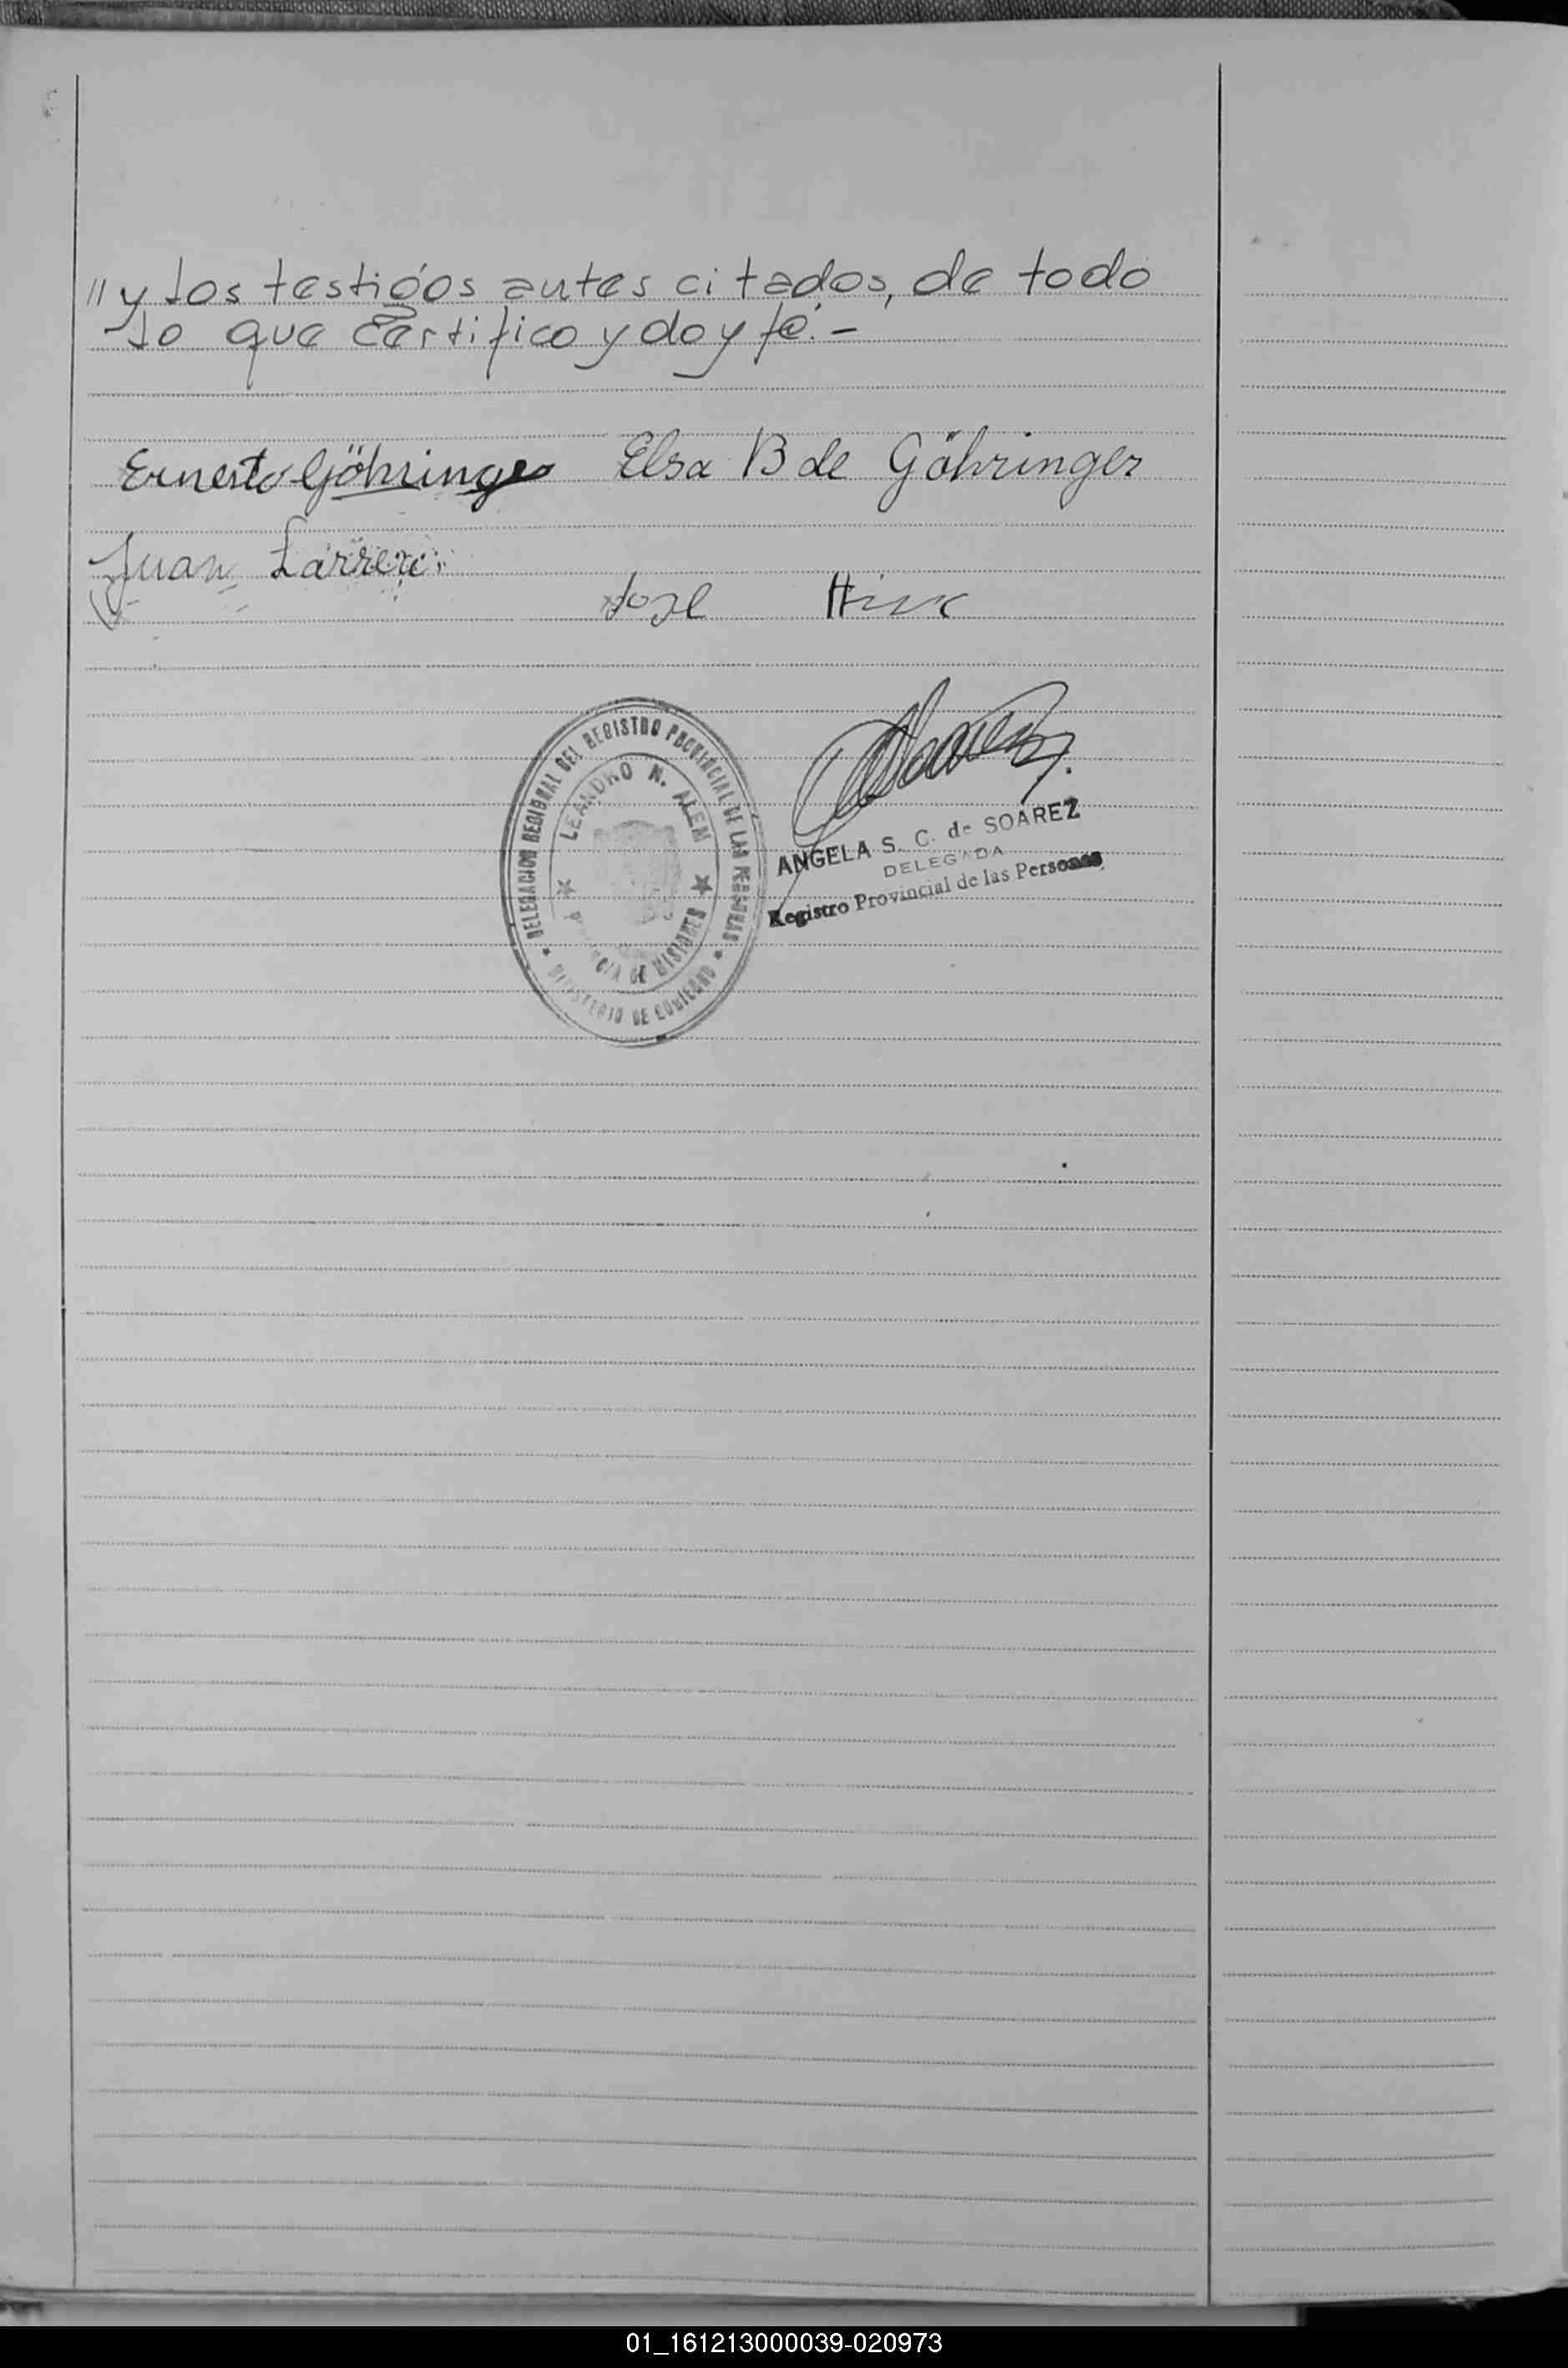 " y los testigos antes citados, de todo
lo que certifico y doy fé.-
Ernesto Göhringer Elsa B de Göhringer
Juan
José
DELEGACION REGIONAL DEL REGISTRO PROVINCIAL DE LAS PERSONAS
LEANDRO N. ALEM
PROVINCIA DE MISIONES
MINISTERIO DE GOBIERNO
ANGELA S. C. de SOAREZ
DELEGADA
Registro Provincial de las Personas
01_161213000039-020973